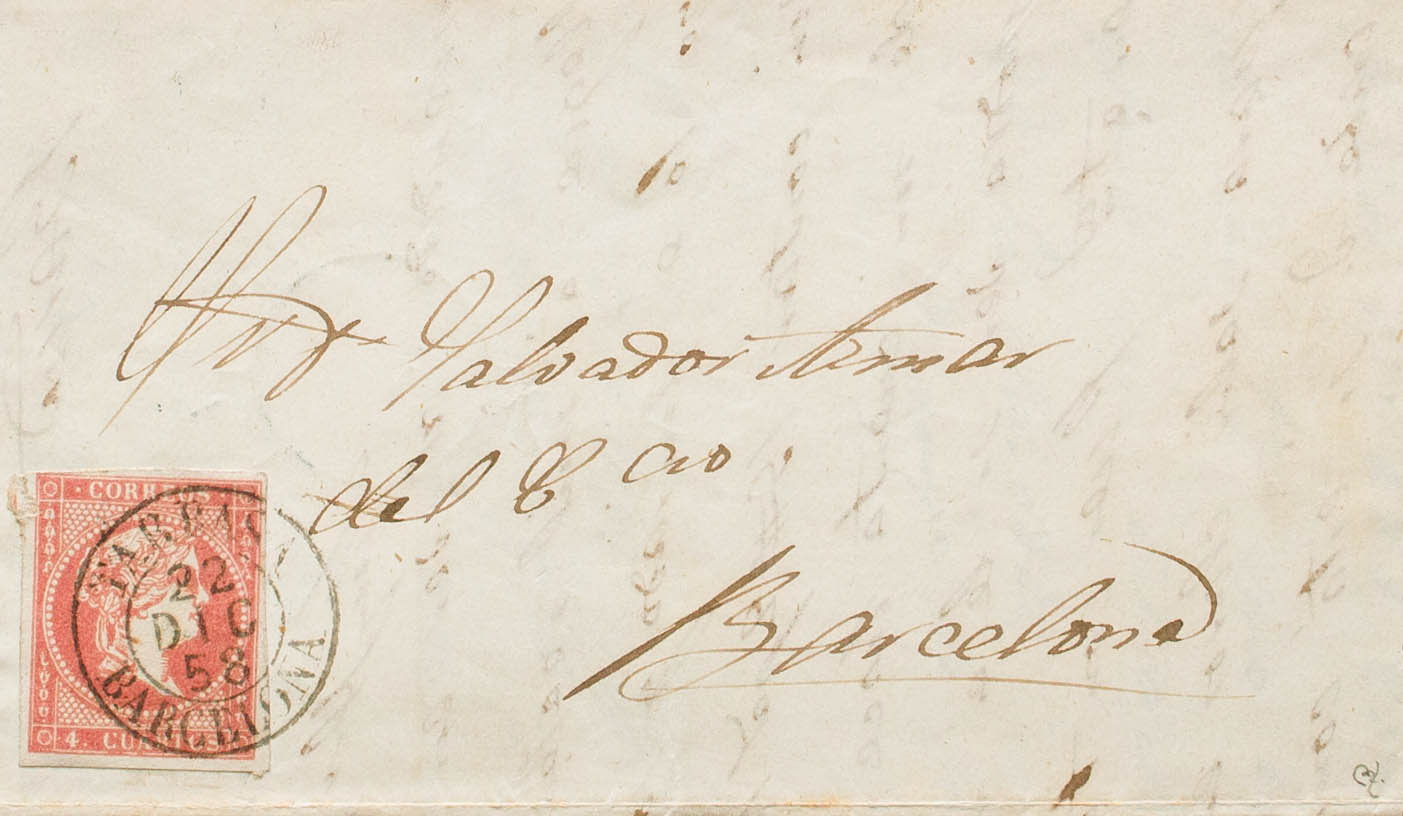 Salvador
del Ccio.
Barcelona
CORREOS
4. CUARTOS
TARRAS
22
DIC
58
BARCELONA